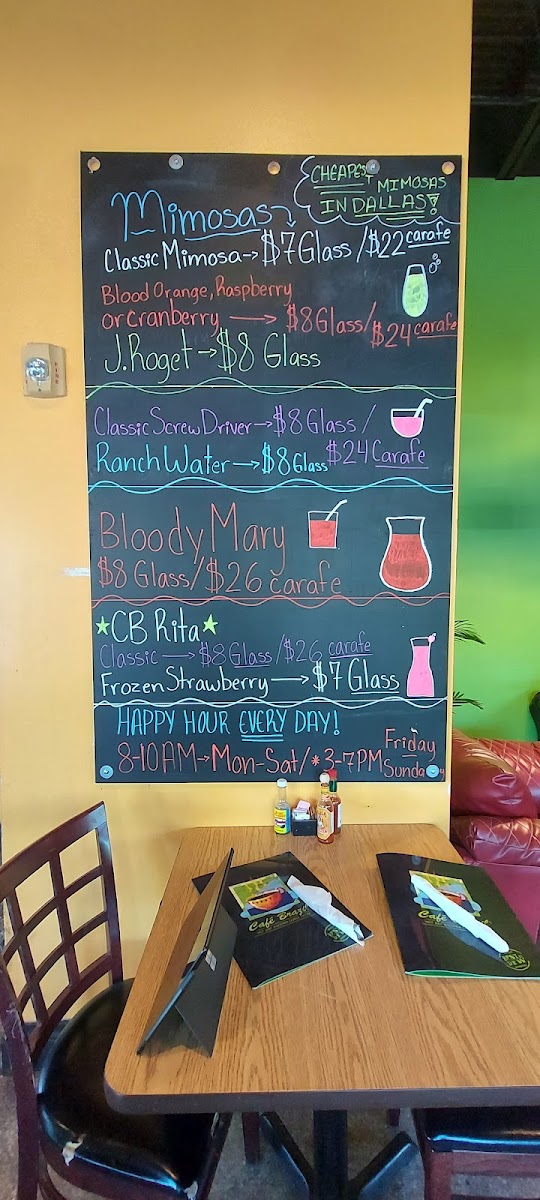 CHEAPEST
MIMOSAS
IN DALLAS!
Mimosas
Classic Mimosa→$7 Glass /$22 carafe
Blood Orange, Raspberry
or cranberry → $8 Glass/$24 carafe
J. Roget → $8 Glass
Classic Screw Driver→$8 Glass / $24 Carafe
Ranch Water→$8 Glass
Bloody Mary
$8 Glass/$26 carafe
CB Rita
Classic → $8 Glass /$26 carafe
Frozen Strawberry → $7 Glass
HAPPY HOUR EVERY DAY!
8-10AM→Mon-Sat/*3-7PM Friday
Sunday
FIRE
Café Brazil
Café